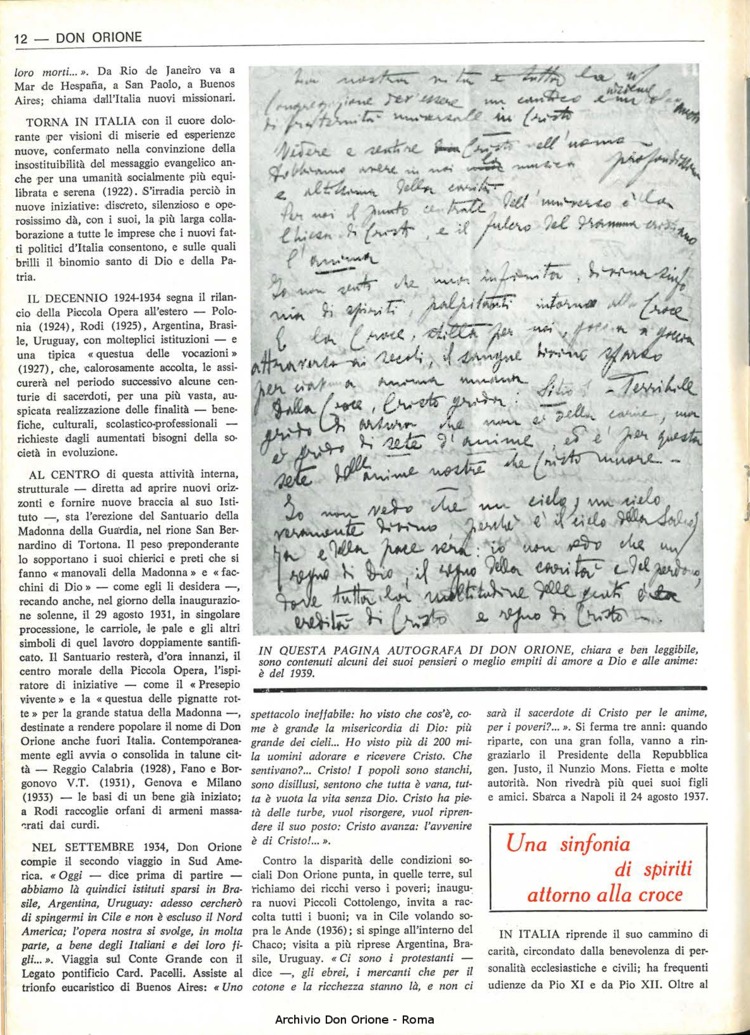 12 — DON ORIONE
loro morti... ». Da Rio de Janeiro va a
Mar de Hespaña, a San Paolo, a Buenos
Aires; chiama dall'Italia nuovi missionari.
TORNA IN ITALIA con il cuore dolo-
rante per visioni di miserie ed esperienze
nuove, confermato nella convinzione della
insostituibilità del messaggio evangelico an-
che per una umanità socialmente più equi-
librata e serena (1922). S'irradia perciò in
nuove iniziative: discreto, silenzioso e ope-
rosissimo dà, con i suoi, la più larga colla-
borazione a tutte le imprese che i nuovi fat-
ti politici d'Italia consentono, e sulle quali
brilli il binomio santo di Dio e della Pa-
tria.
IL DECENNIO 1924-1934 segna il rilan-
cio della Piccola Opera all'estero — Polo-
nia (1924), Rodi (1925), Argentina, Brasi-
le, Uruguay, con molteplici istituzioni — e
una tipica « questua delle vocazioni »
(1927), che, calorosamente accolta, le assi-
curerà nel periodo successivo alcune cen-
turie di sacerdoti, per una più vasta, au-
spicata realizzazione delle finalità — bene-
fiche, culturali, scolastico-professionali —
richieste dagli aumentati bisogni della so-
cietà in evoluzione.
AL CENTRO di questa attività interna,
strutturale — diretta ad aprire nuovi oriz-
zonti e fornire nuove braccia al suo Isti-
tuto —, sta l'erezione del Santuario della
Madonna della Guardia, nel rione San Ber-
nardino di Tortona. Il peso preponderante
lo sopportano i suoi chierici e preti che si
fanno « manovali della Madonna » e « fac-
chini di Dio » — come egli li desidera —,
recando anche, nel giorno della inaugurazio-
ne solenne, il 29 agosto 1931, in singolare
processione, le carriole, le pale e gli altri
simboli di quel lavoro doppiamente santifi-
cato. Il Santuario resterà, d'ora innanzi, il
centro morale della Piccola Opera, l'ispi-
ratore di iniziative — come il « Presepio
vivente » e la « questua delle pignatte rot-
te » per la grande statua della Madonna —,
destinate a rendere popolare il nome di Don
Orione anche fuori Italia. Contemporanea-
mente egli avvia o consolida in talune cit-
tà — Reggio Calabria (1928), Fano e Bor-
gonovo V.T. (1931), Genova e Milano
(1933) — le basi di un bene già iniziato;
a Rodi raccoglie orfani di armeni massa-
crati dai curdi.
NEL SETTEMBRE 1934, Don Orione
compie il secondo viaggio in Sud Ame-
rica. « Oggi — dice prima di partire —
abbiamo là quindici istituti sparsi in Bra-
sile, Argentina, Uruguay: adesso cercherò
di spingermi in Cile e non è escluso il Nord
America; l'opera nostra si svolge, in molta
parte, a bene degli Italiani e dei loro fi-
gli... ». Viaggia sul Conte Grande con il
Legato pontificio Card. Pacelli. Assiste al
trionfo eucaristico di Buenos Aires: « Uno
La nostra vita e tutta la
Congregazione dev'essere un cantico e insieme un olocausto
di fraternità universale in Cristo
Vedere e sentire Cristo nell'uomo —
Dobbiamo avere in noi la musica profondissima
e altissima della carità
Per noi il punto centrale dell'universo è la
Chiesa di Cristo, e il fulcro del dramma cristiano
l'anima
Io non sento che una infinita, divina sinfo
nia di spiriti, palpitanti intorno alla Croce
E la Croce, stilla per noi, goccia a goccia
attraverso ai secoli, il sangue divino sparso
per ciascuna anima umana
Dalla Croce, Cristo grida: Sitio! — Terribile
grido di arsura che non è della carne, ma
è grido di sete d'anime, ed è per questa
sete delle anime nostre che Cristo muore. —
Io non vedo che un cielo, un cielo
veramente divino perché è il cielo della
e della pace vera: io non vedo che un
regno di Dio, il regno della carità e del perdono,
dove tutta la moltitudine delle genti è
eredità di Cristo e regno di Cristo —.
IN QUESTA PAGINA AUTOGRAFA DI DON ORIONE, chiara e ben leggibile,
sono contenuti alcuni dei suoi pensieri o meglio empiti di amore a Dio e alle anime:
è del 1939.
spettacolo ineffabile: ho visto che cos'è, co-
me è grande la misericordia di Dio: più
grande dei cieli... Ho visto più di 200 mi-
la uomini adorare e ricevere Cristo. Che
sentivano?... Cristo! I popoli sono stanchi,
sono disillusi, sentono che tutta è vana, tut-
ta è vuota la vita senza Dio. Cristo ha pie-
tà delle turbe, vuol risorgere, vuol ripren-
dere il suo posto: Cristo avanza: l'avvenire
è di Cristo!... ».
Contro la disparità delle condizioni so-
ciali Don Orione punta, in quelle terre, sul
richiamo dei ricchi verso i poveri; inaugu-
ra nuovi Piccoli Cottolengo, invita a rac-
colta tutti i buoni; va in Cile volando so-
pra le Ande (1936); si spinge all'interno del
Chaco; visita a più riprese Argentina, Bra-
sile, Uruguay. « Ci sono i protestanti —
dice —, gli ebrei, i mercanti che per il
cotone e la ricchezza stanno là, e non ci
sarà il sacerdote di Cristo per le anime,
per i poveri?... ». Si ferma tre anni: quando
riparte, con una gran folla, vanno a rin-
graziarlo il Presidente della Repubblica
gen. Justo, il Nunzio Mons. Fietta e molte
autorità. Non rivedrà più quei suoi figli
e amici. Sbarca a Napoli il 24 agosto 1937.
Una sinfonia
di spiriti
attorno alla croce
IN ITALIA riprende il suo cammino di
carità, circondato dalla benevolenza di per-
sonalità ecclesiastiche e civili; ha frequenti
udienze da Pio XI e da Pio XII. Oltre al
Archivio Don Orione - Roma